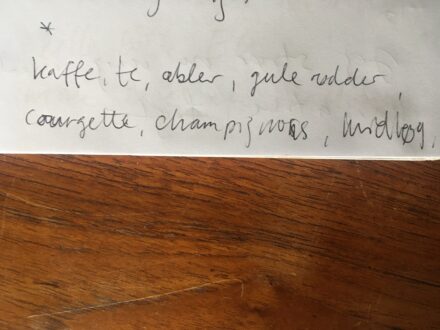 *
kaffe, te, æbler, gule rødder,
courgette, champignons, hvidløg,